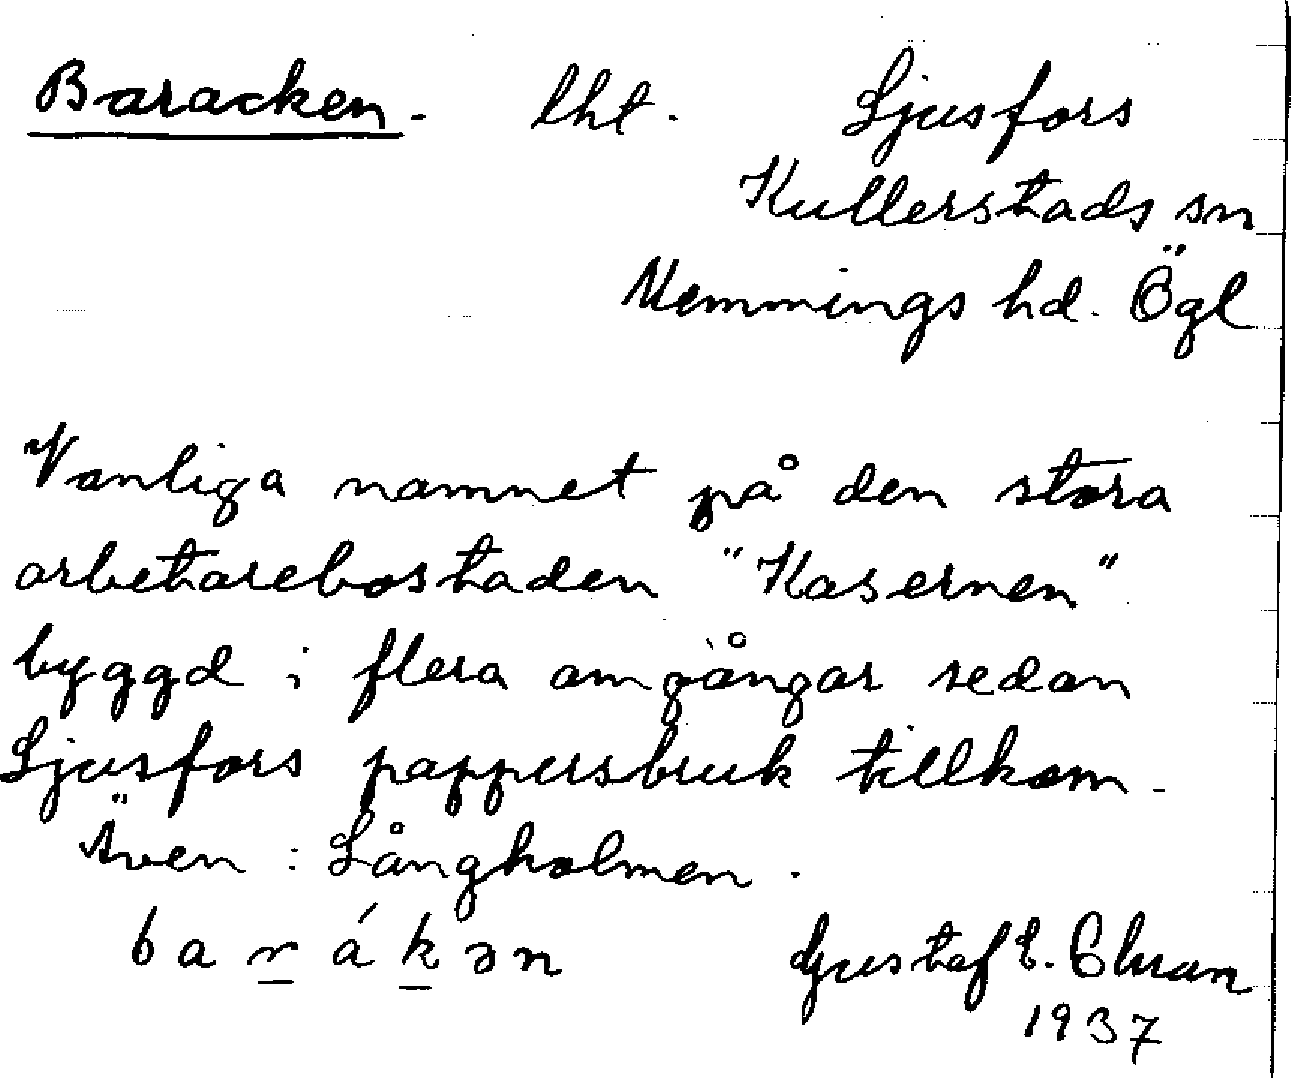 Baracken. lht. Ljusfors
Kullerstads sn
Memmings hd. Ögl
Vanliga namnet på den stora
arbetarebostaden "Kasernen"
byggd i flera omgångar sedan
Ljusfors pappersbruk tillkom.
Även: Långholmen.
b a r á k ə n Gustaf E.
1937